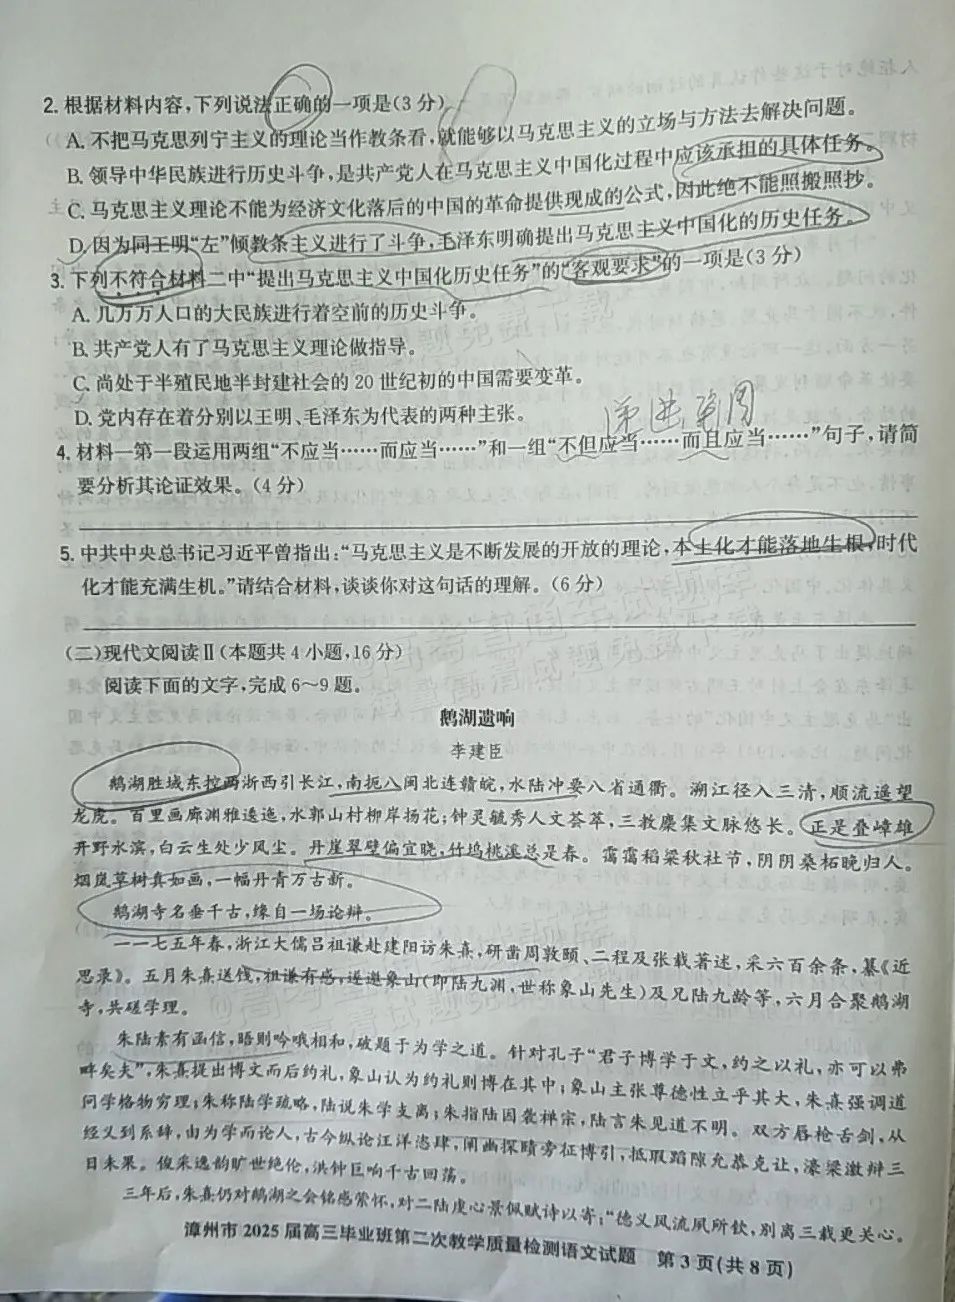 2. 根据材料内容，下列说法正确的一项是(3分)
A. 不把马克思列宁主义的理论当作教条看，就能够以马克思主义的立场与方法去解决问题。
B. 领导中华民族进行历史斗争，是共产党人在马克思主义中国化过程中应该承担的具体任务。
C. 马克思主义理论不能为经济文化落后的中国的革命提供现成的公式，因此绝不能照搬照抄。
D. 因为同王明“左”倾教条主义进行了斗争，毛泽东明确提出马克思主义中国化的历史任务。
3. 下列不符合材料二中“提出马克思主义中国化历史任务”的“客观要求”的一项是(3分)
A. 几万万人口的大民族进行着空前的历史斗争。
B. 共产党人有了马克思主义理论做指导。
C. 尚处于半殖民地半封建社会的20世纪初的中国需要变革。
D. 党内存在着分别以王明、毛泽东为代表的两种主张。
递进
4. 材料一第一段运用两组“不应当……而应当……”和一组“不但应当……而且应当……”句子，请简
要分析其论证效果。(4分)
5. 中共中央总书记习近平曾指出：“马克思主义是不断发展的开放的理论，本土化才能落地生根，时代
化才能充满生机。”请结合材料，谈谈你对这句话的理解。(6分)
(二)现代文阅读Ⅱ(本题共4小题，16分)
阅读下面的文字，完成6～9题。
鹅湖遗响
李建臣
鹅湖胜域东控两浙西引长江，南扼八闽北连赣皖，水陆冲要八省通衢。溯江径入三清，顺流遥望
龙虎。百里画廊渊雅逶迤，水郭山村柳岸扬花；钟灵毓秀人文荟萃，三教麇集文脉悠长。正是叠嶂雄
开野水滨，白云生处少风尘。丹崖翠壁偏宜晓，竹坞桃溪总是春。霭霭稻粱秋社节，阴阴桑柘晚归人。
烟岚草树真如画，一幅丹青万古新。
鹅湖寺名垂千古，缘自一场论辩。
一一七五年春，浙江大儒吕祖谦赴建阳访朱熹，研凿周敦颐、二程及张载著述，采六百余条，纂《近
思录》。五月朱熹送饯，祖谦有感，遂邀象山(即陆九渊，世称象山先生)及兄陆九龄等，六月合聚鹅湖
寺，共磋学理。
朱陆素有函信，晤则吟哦相和，破题于为学之道。针对孔子“君子博学于文，约之以礼，亦可以弗
畔矣夫”，朱熹提出博文而后约礼，象山认为约礼则博在其中；象山主张尊德性立乎其大，朱熹强调道
问学格物穷理；朱称陆学疏略，陆说朱学支离；朱指陆因袭禅宗，陆言朱见道不明。双方唇枪舌剑，从
经义到系辞，由为学而论人，古今纵论汪洋恣肆，阐幽探赜旁征博引，抵瑕蹈隙允恭克让，濠梁激辩三
日未果。俊采逸韵旷世绝伦，洪钟巨响千古回荡。
三年后，朱熹仍对鹅湖之会铭感萦怀，对二陆虔心景佩赋诗以寄：“德义风流夙所钦，别离三载更关心。
漳州市2025届高三毕业班第二次教学质量检测语文试题 第3页(共8页)